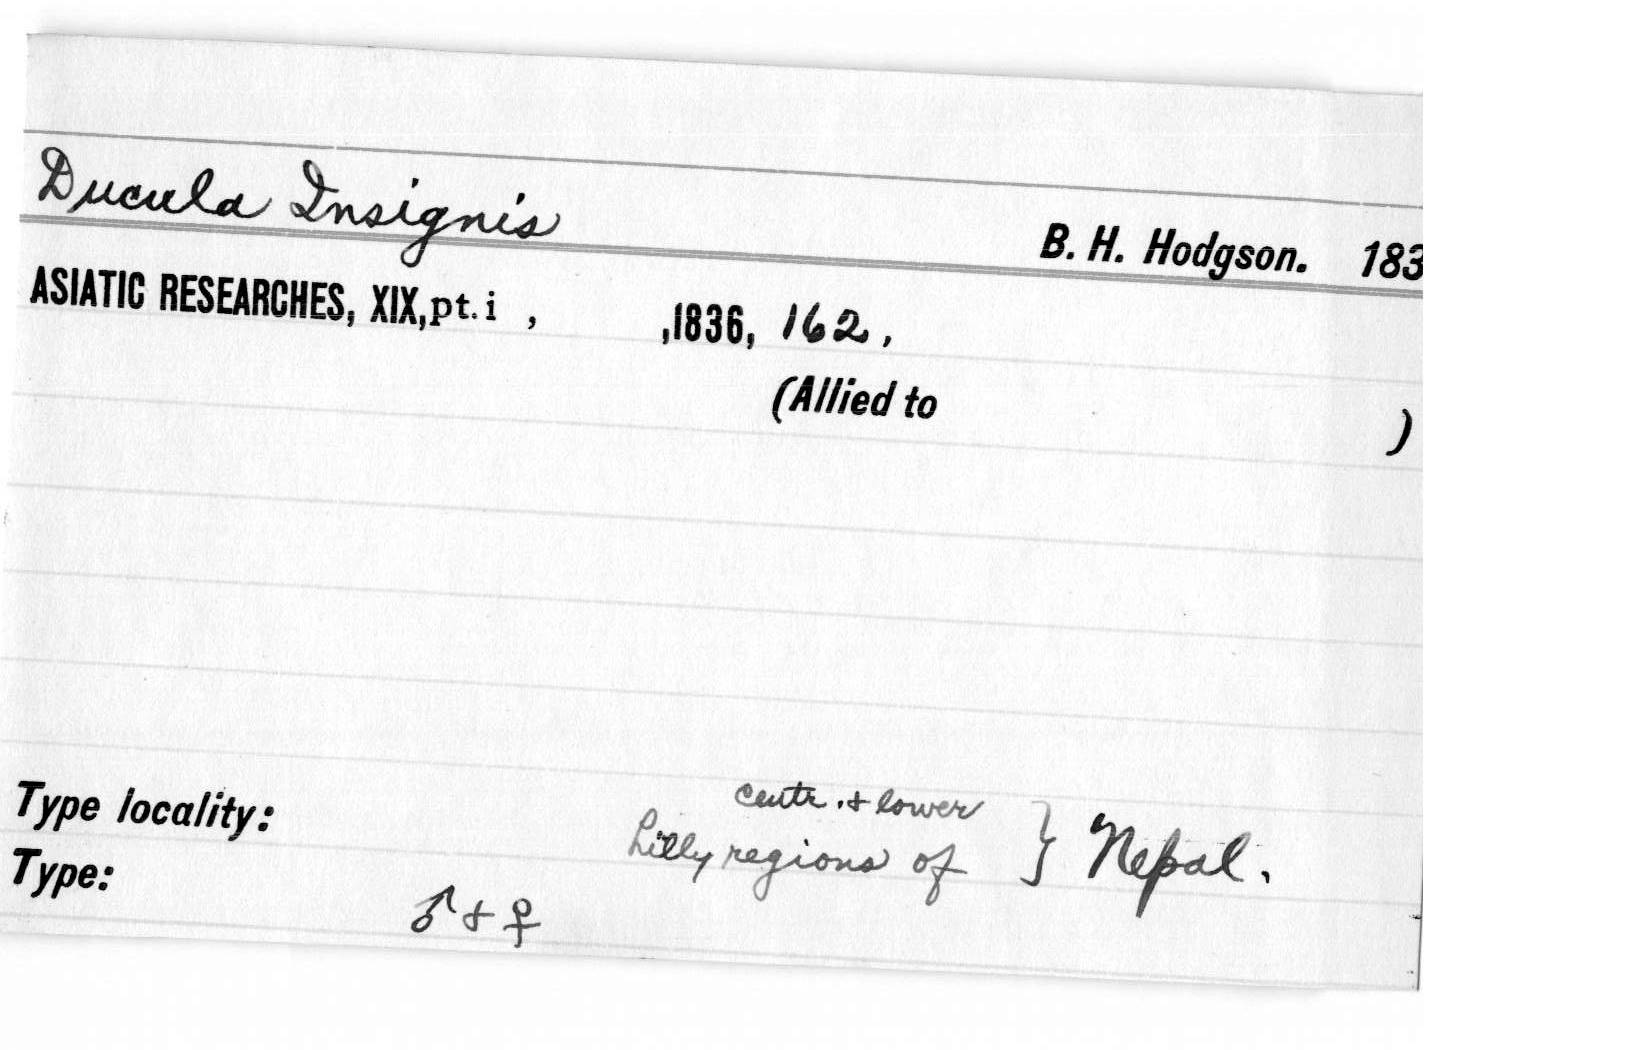 Ducula Insignis
B. H. Hodgson. 183
ASIATIC RESEARCHES, XIX, pt. i , ,1836, 162.
(Allied to )
centr. & lower
Type locality: hilly regions of } Nepal.
Type: ♂ & ♀